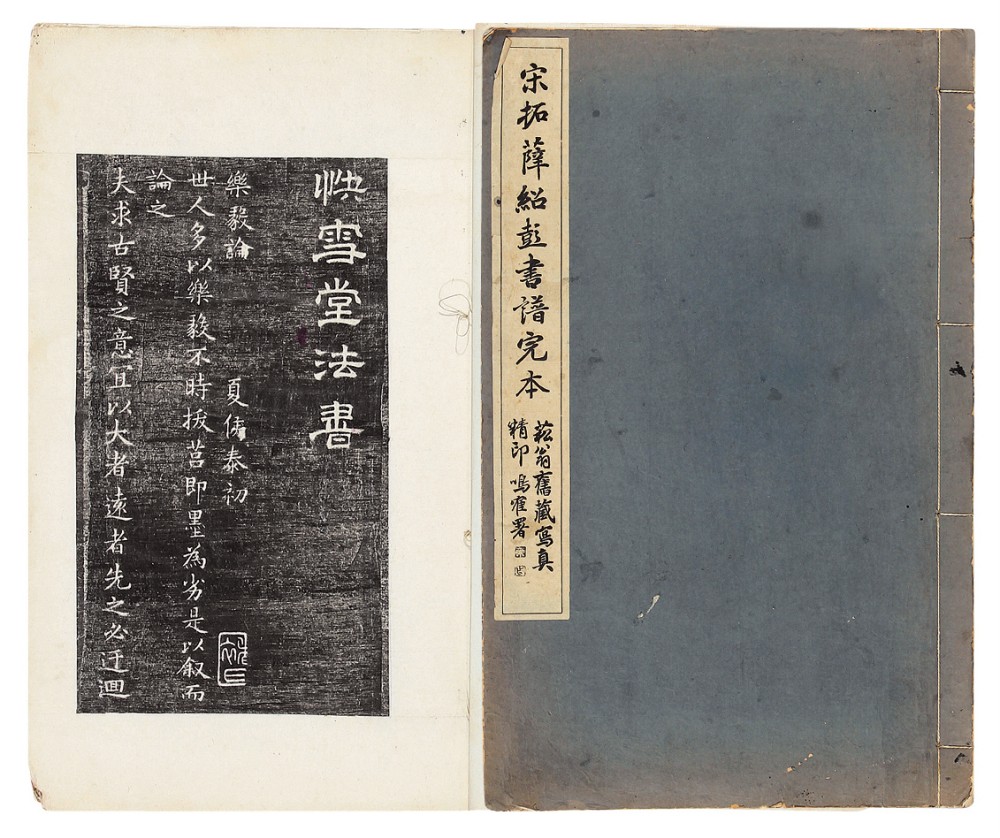 宋拓薛紹彭書譜完本
菘翁舊藏寫真
精印 鳴寉署
快雪堂法書
樂毅論 夏侯泰初
世人多以樂毅不時拔莒即墨為劣是以叙而
論之
夫求古賢之意宜以大者遠者先之必迂迴